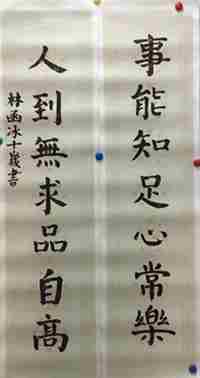 事能知足心常樂
人到無求品自高
林函冰十歲書